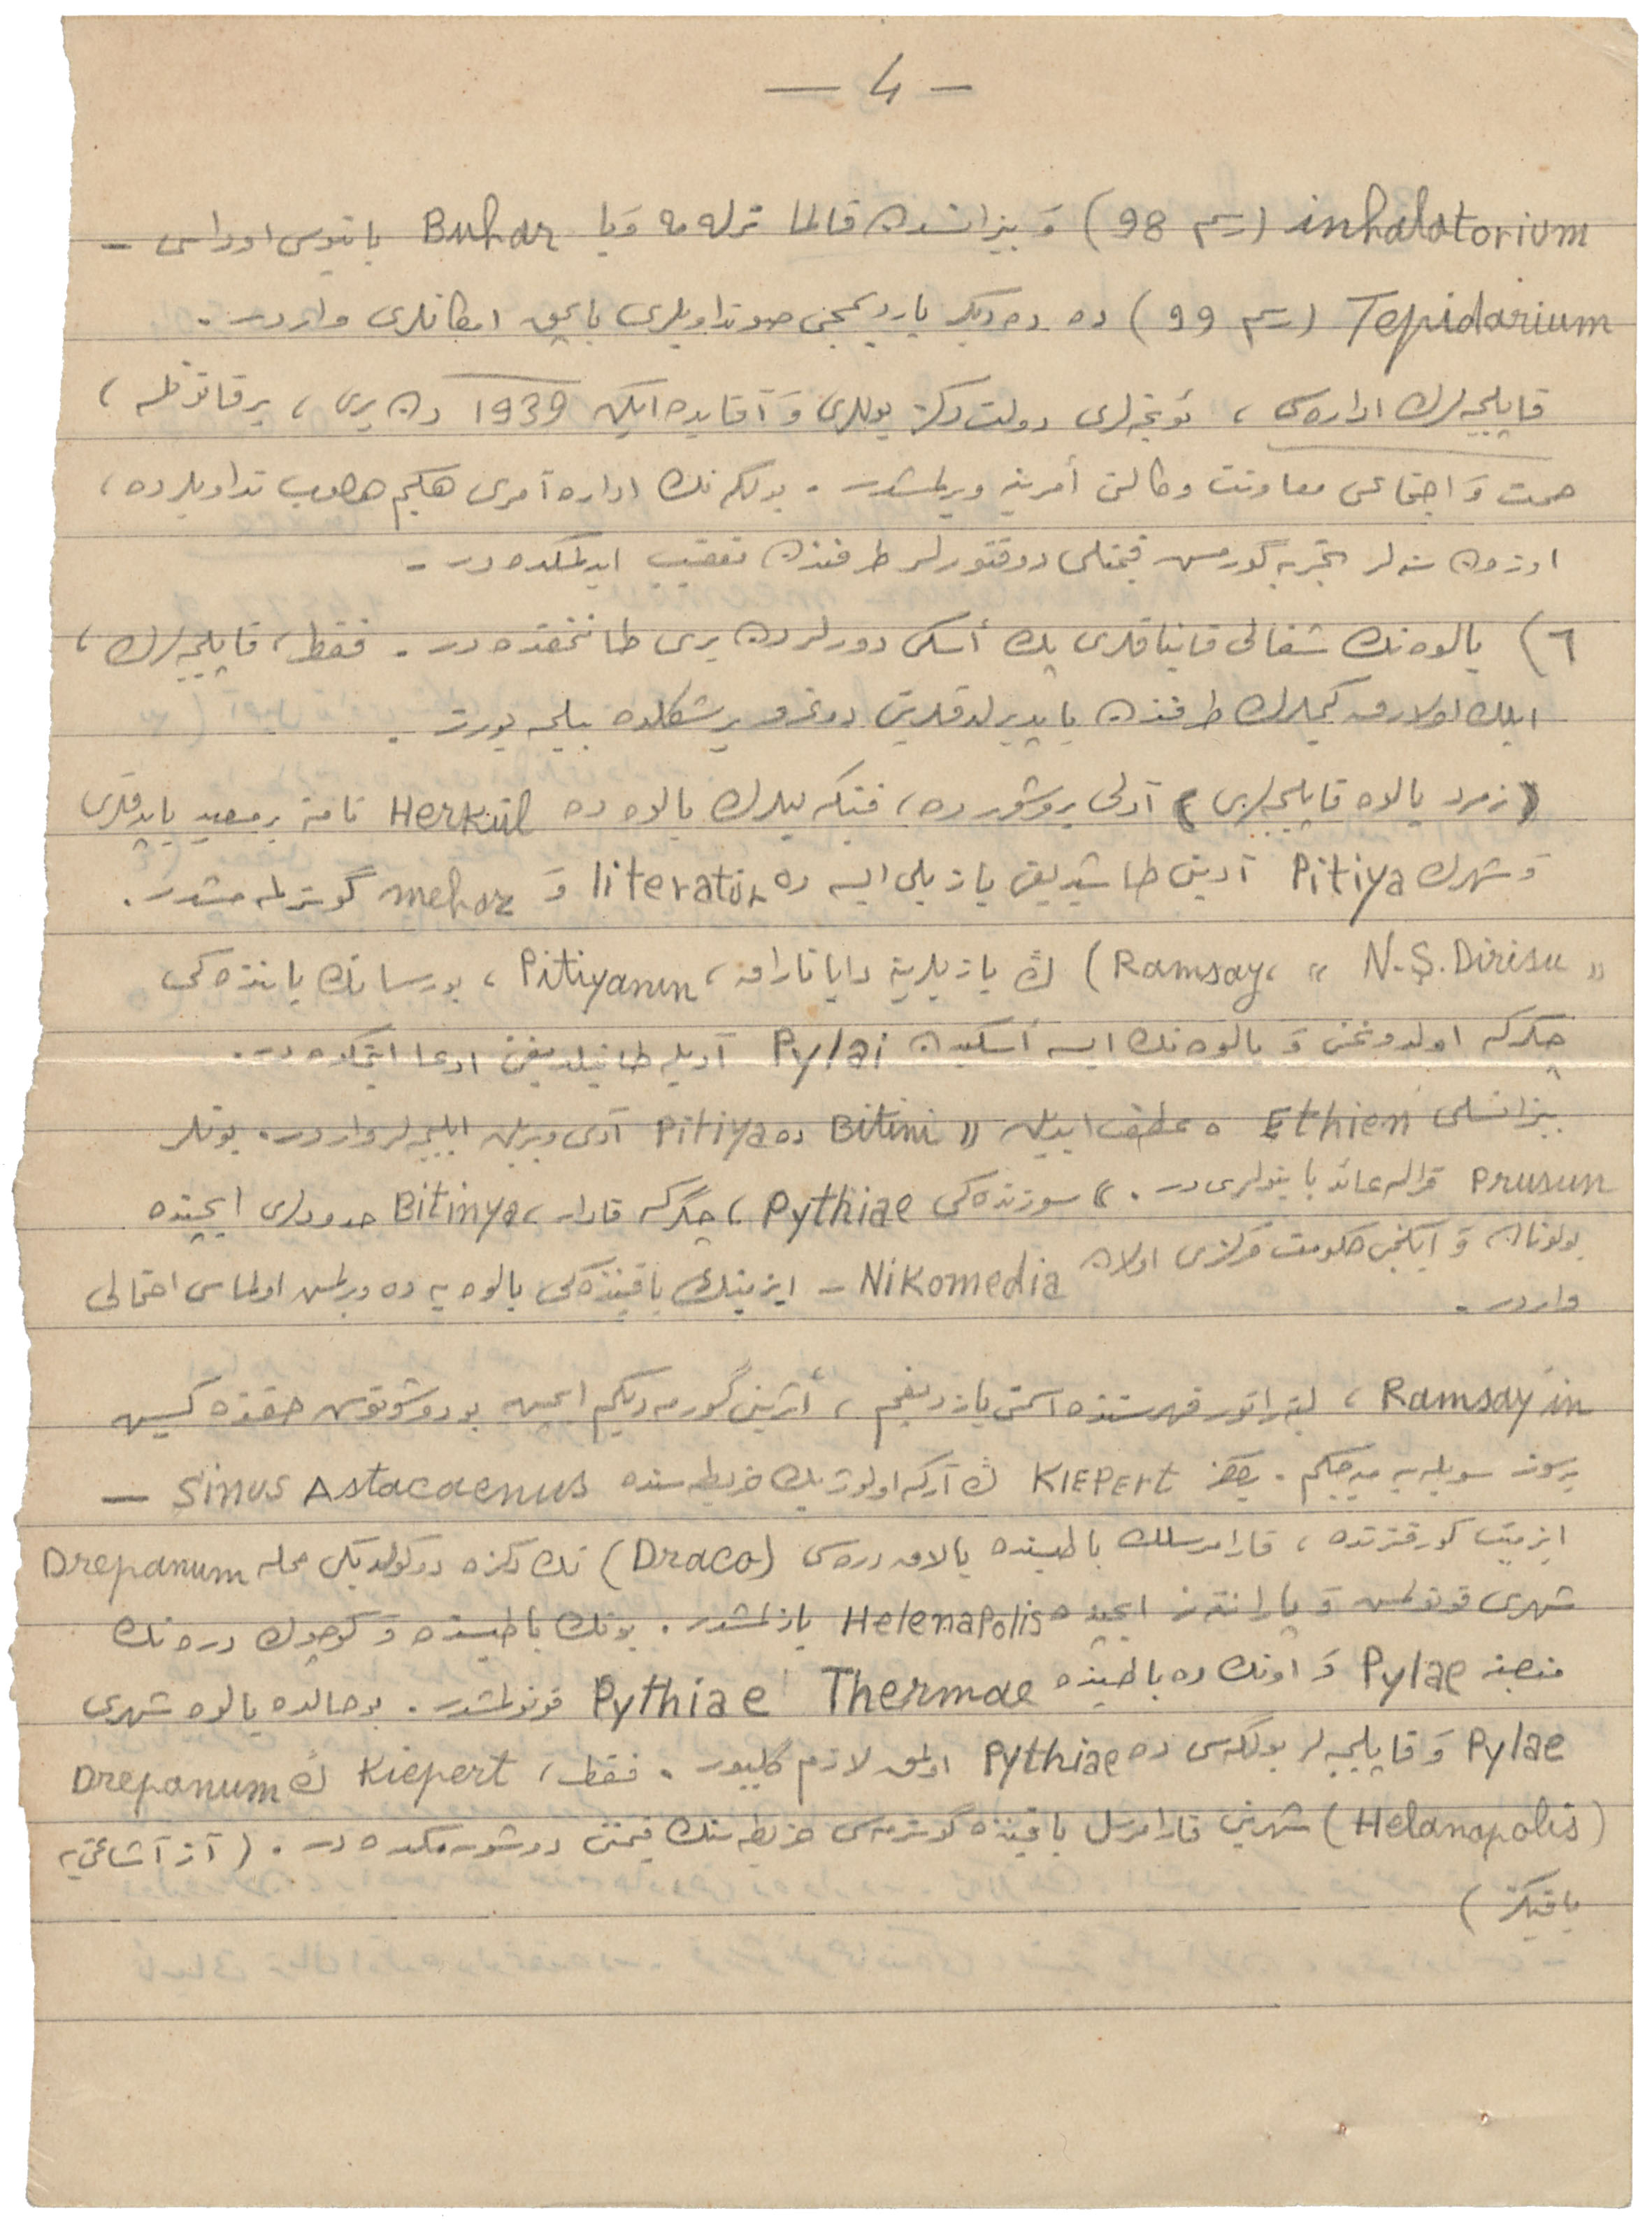 — 4 —
inhalatorium (رسم 98) وَ بیزانسدن قالما ترله مه وَیا Buhar بانیوسی اوداسی –
Tepidarium (رسم 99) ده ده دیگر یاردیمجی صو تداویلری یاپمق امکانلری واردر .
قاپلیجه لرك اداره سی ، ئوڭجه لری دولت دڭز یوللری وَ آقایده ایكن 1939 دن بری ، بر قانونله ،
صحت وَ اجتماعی معاونت وکالتی أمرینه ویرلمشدر . بولگه نك اداره آمری هكیم اولوب تداویلرده ،
اوزون سنه لر تجربه گورمش قیمتلی دوقتورلر طرفندن تعقیب ایدلمكده در –
٦) یالوه نك شفالی قایناقلری پك أسكی دورلردن بری طانینمقده در . فقط ، قاپلیجه لرك ،
ایلك اولارق كیملرك طرفندن یاپدیرلدقلرینی دوغرو بر شكلده بیلمه یورز .
«زمرد یالوه قاپلیجه لری» آدلی بروشورده ، فنیكه لیلرك یالوه ده Herkül نامنه بر معبد یاپدقلری
وَ شهرك Pitiya آدینی طاشیدیغی یازیلی ایسه ده literatür وَ mehaz گوسترلمه مشدر .
« N.Ş.Dirisu » ، Ramsay) ڭ یازیلرینه دایانارق ، Pitiyanın ، بورسانك یاننده كی
چكرگه اولدوغنی وَ یالوه نك ایسه أسكیدن Pylai آدیله طانیلدیغنی ادعا ایتمكده در .
بیزانسلی Ethien ه عطف ایدیلن « Bitini ده Pitiya آدی ویریلن ایلیجه لر واردر . بونلر
Prusun قرالنه عائد بانیولری در . » سوزنده كی Pythiae ، چكرگه قادار ، Bitinya حدودلری ایچنده
بولونان وَ ایكنجی حكومت مركزی اولان Nikomedia – ایزمیتك یاقیننده كی یالوه یه ده ویرلمش اولماسی احتمالی
واردر .
Ramsay'in ، لیته راتور فهرستنده اسمنی یازدیغم ، أثرینی گورمه دیكم ایچین بو دوشونوش حقنده كسین
بر سوز سویله یه میه جكم . یالكز KIEPERT ڭ آرکه اولوژیك خریطه سنده Sinus Astacaenus —
ایزمیت كورفزنده ، قارامرسلك باطیسنده یالاق دره سی (Draco) نك دڭزه دوكولدیكی محله Drepanum
شهری قونولمش وَ پارانتز ایچنده Helenapolis یازلمشدر . بونك باطیسنده وَ كوچوك دره نك
منصبنه Pylae وَ اونك ده باطیسنده Pythiae Thermae قونولمشدر . بو حالده یالوه شهری
Pylae وَ قاپلیجه لر بولگه سی ده Pythiae اولمق لازم گلیور . فقط ، Kiepert ڭ Drepanum
(Helanopolis) شهرینی قارامرسل یاقیننده گوسترمه سی خریطه سنك قیمتنی دوشورمكده در . (آز آشاغی یه
باقیڭز)